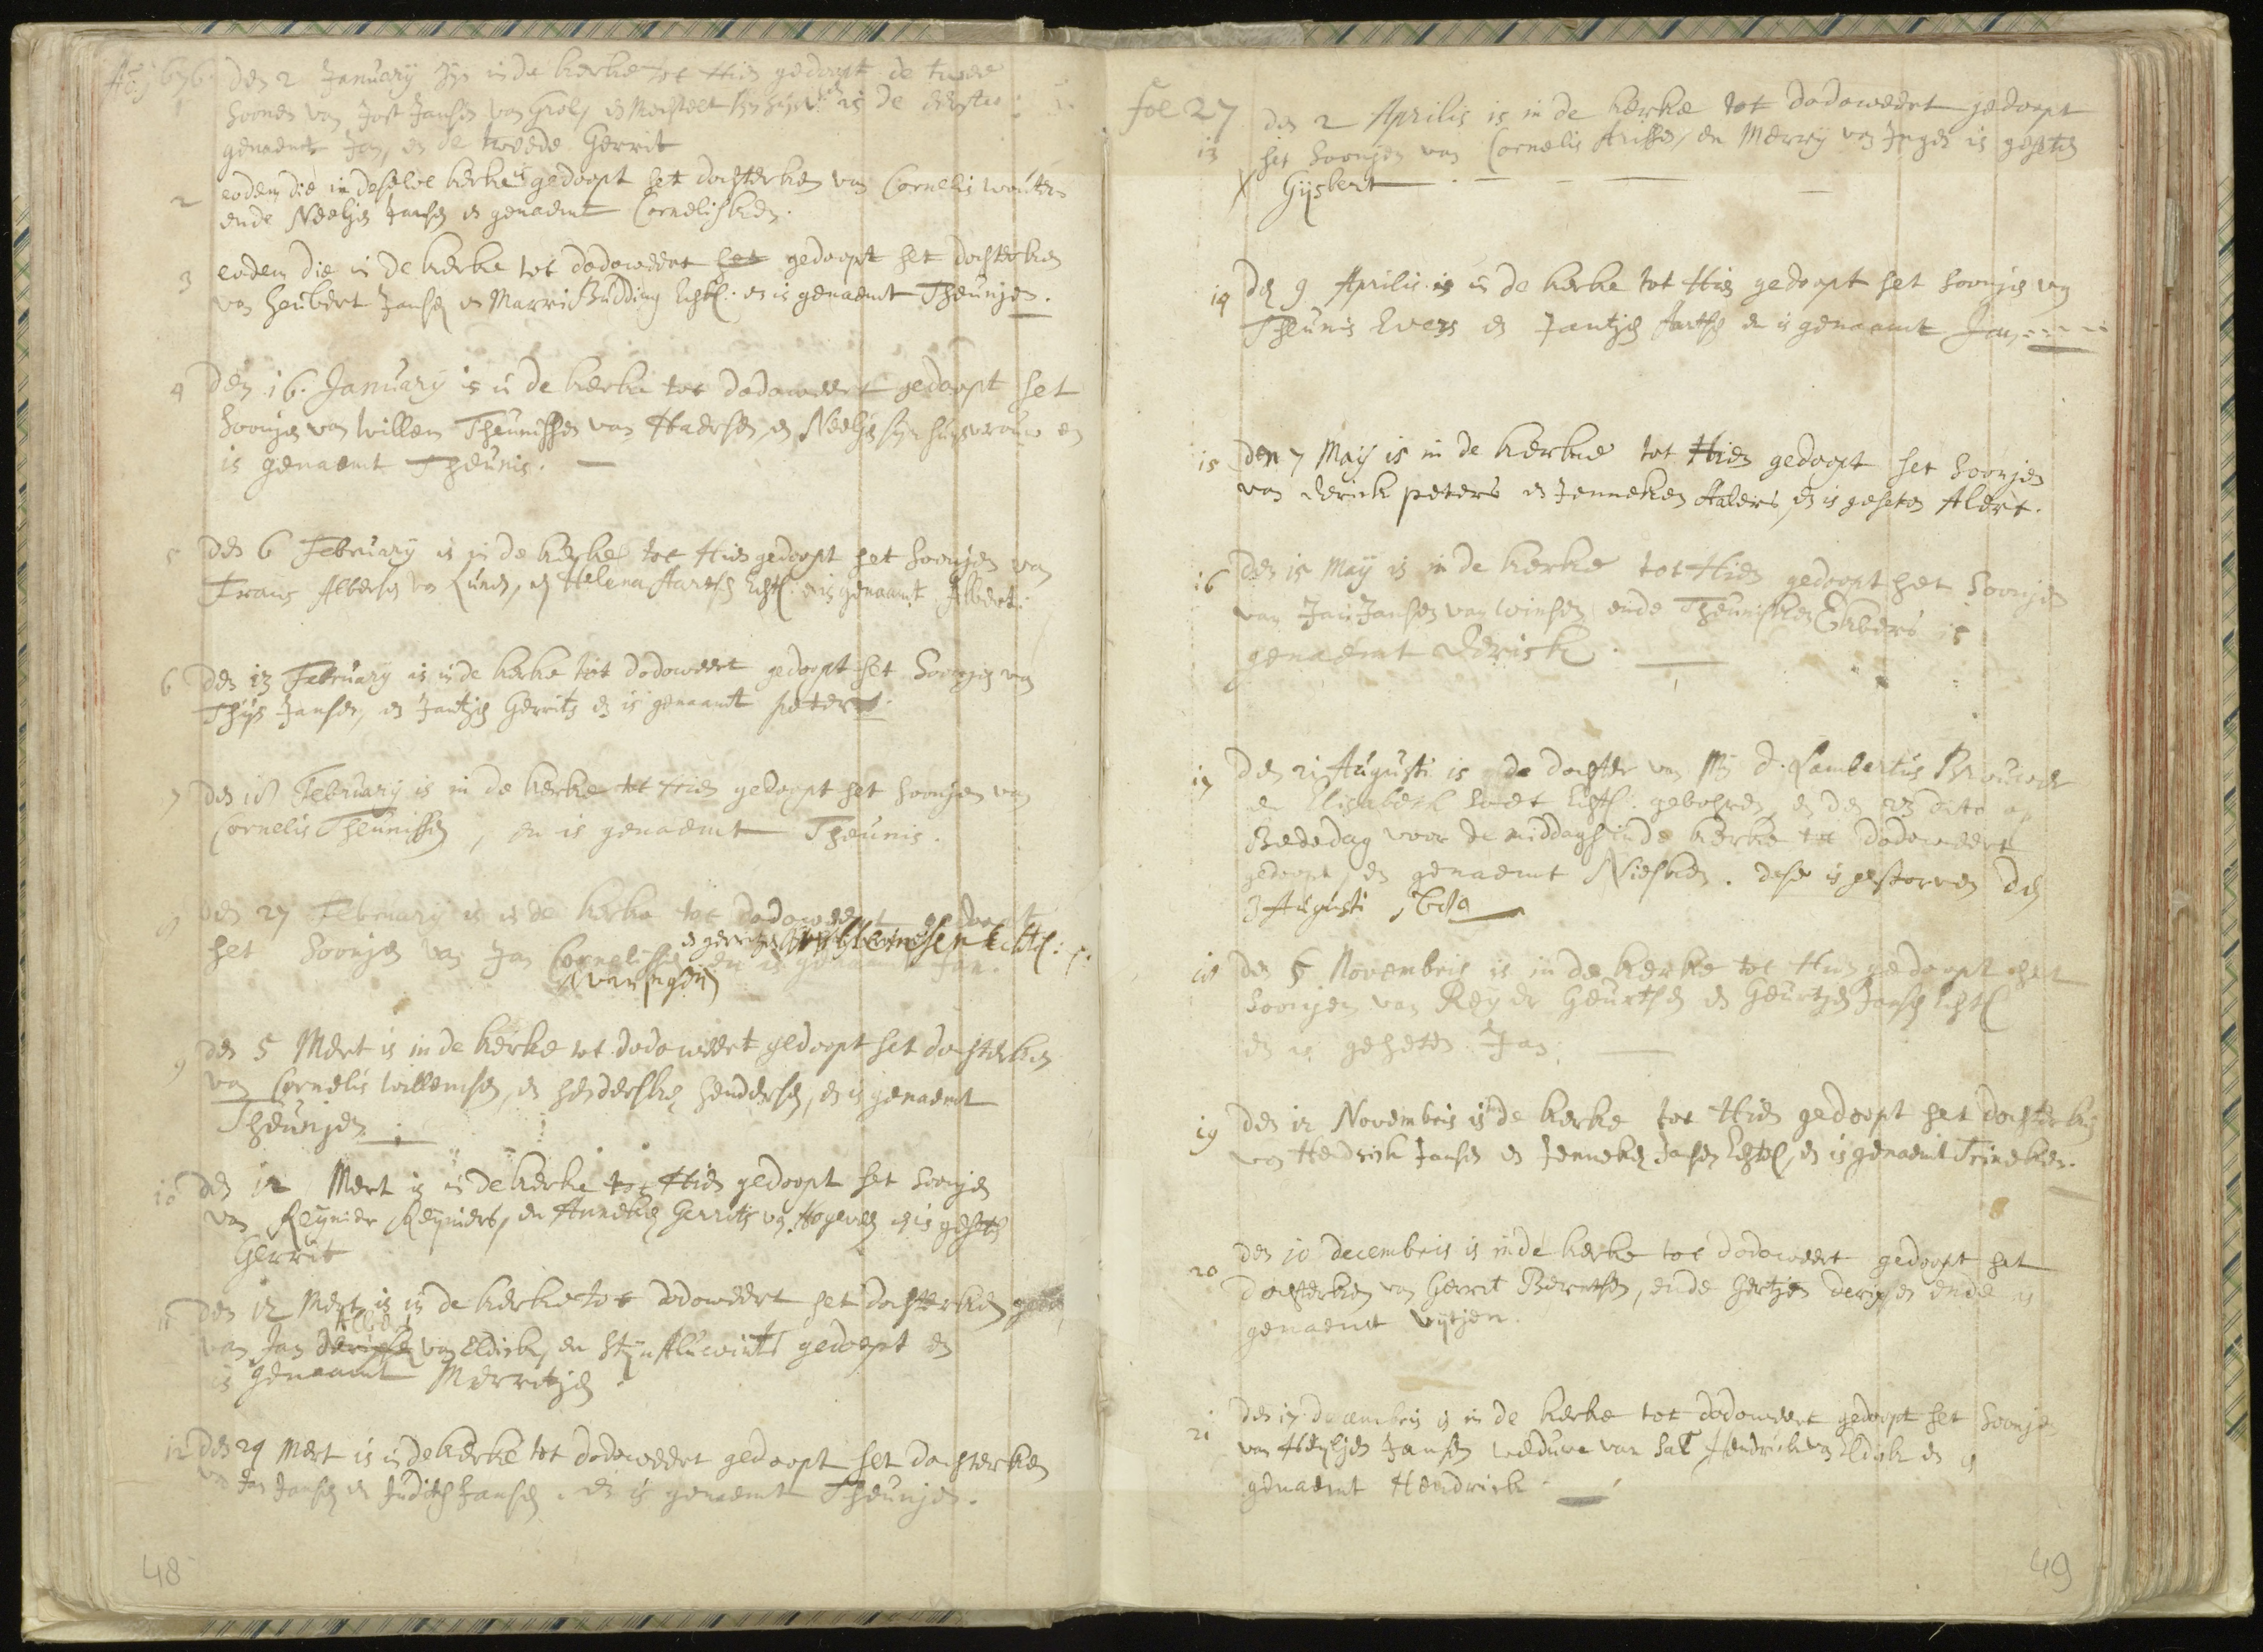 Ao. 1676. den 2 January zijn in de kerke tot Hien gedoopt de twee
1 soonen van Jost Jansen van Grol, en is de eerste
genaemt Jan, en de tweede Gerrit
2 eodem die in deselve kerke is gedoopt het dochterken van Cornelis Wouters
ende Neeltjen Jansen is genaemt Cornelisken.
3 eodem die in de kerke tot dodeweert het gedoopt het dochterken
van Heubert Jansen en Marri Budding Echtl. en is genaemt Theunjen.
4 den 16. January is in de kerke tot dodeweert gedoopt het
Soonjen van Willem Theunissen van Haersen, en Neeltje sijn huisvrouw en
is genaemt Theunis.
5 den 6 February is in de kerke tot Hien gedoopt het soonjen van
Frans Albersen van Lunen, en Helena Aartsen Echtl. en is genaamt Albert.
6 den 13 February is in de kerke tot dodeweert gedoopt het Soonjen van
Thijs Jansen, en Jantjen Gerrits en is genaamt peter
7 den 18 February is in de kerke tot Hien gedoopt het soonjen van
Cornelis Theunissen, en is genaemt Theunis.
8 den 27 February is in de kerke tot dodeweert gedoopt
en gerritjen Willemsen Echtl:
het Soonjen van Jan Cornelissen en is genaamt Jan.
van Ingen
9 den 5 Mert is in de kerke tot dodeweert gedoopt het dochterken
van Cornelis Willemsen, en hendersken hendersen, en is genaemt
Theunjen.
10 den 12 Mert is in de kerke tot Hien gedoopt het soonjen
van Reijnier Reijniers, en Anneken Gerrits van Hogeveen en is geheten
Gerrit
11 den 12 Mert is in de kerke tot dodeweert het dochterken
Albers
van Jan derixsen van Eldick, en Stijn Aluwints gedoopt en
is genaamt Merritjen
12 den 24 Mert is in de kerke tot dodeweert gedoopt het dochterken
van Jan Jansen en Judith Jansen. en is genaemt Theunjen.
48
fol 27
den 2 Aprilis is in de kerke tot dodeweert gedoopt
13 het soonjen van Cornelis Arissen, en Merrij van Ingen is geheten
X Gijsbert
14 den 9 Aprilis is in de kerke tot Hien gedoopt het soonjen van
Theunis Evers en Jantjen Aertsen en is genaamt Jan
15 den 7 Maij is in de kerke tot Hien gedoopt het soonjen
van derick peters en Jenneken Aalers, en is geheten Alert.
16 den 15 Maij is in de kerke tot Hien gedoopt het soonjen
van Jan Jansen van Winsen ende Theunisken Ebbers is
genaemt derick.
17 den 21 Augusti is de dochter van Mij d. Lambertus Brouwer
en Elisabeth Echtl. gebohren, en den 23 dito op
Bededag voor de middagh in de kerke tot dodeweert
gedoopt en genaemt Niesken. dese is gestorven den
3 Augusti
18 den 5 Novembris is in de kerke tot Hien gedoopt het
soonjen van Reijer Geurtsen en Geurtjen Jansen Echtl
en is geheten Jan.
19 den 12 Novembris is in de kerke tot Hien gedoopt het dochterken
van Hendrick Jansen en Jenneken Jansen Echtl, en is genaemt Trineken.
20 den 10 decembris is in de kerke tot dodeweert gedoopt het
dochterken van Gerrit Berntsen, ende Gertjen derixsen ende is
genaemt Eijtjen.
21 den 17 decembris is in de kerke tot dodeweert gedoopt het Soonje
van Heijltjen Jansen weduwe van sal Hendrick van Eldick en is
genaemt Hendrick.
49